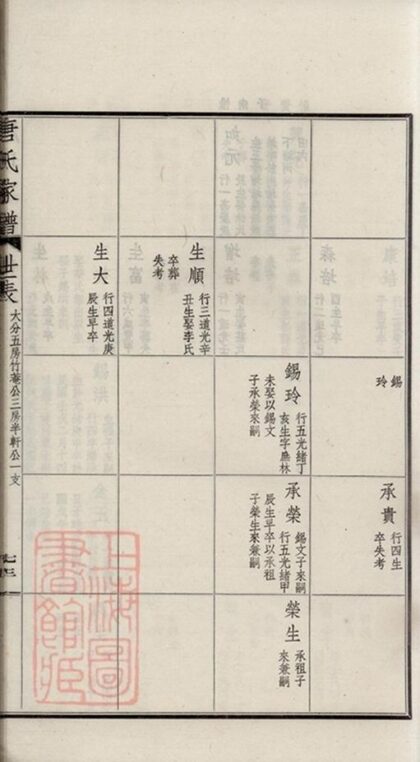 錫
玲
承貴
行四生
卒失考
錫玲
行五光緒丁
亥生字林
未娶以錫文
子承榮來嗣
承榮
錫文子來嗣
行五光緒甲
辰生早卒以承祖
子榮生來兼嗣
榮生
承祖子
來兼嗣
生順
行三道光辛
丑生娶李氏
卒葬
失考
生大
行四道光庚
辰生早卒
唐氏家譜
世表
大分五房竹菴公三房半軒公一支
上海圖
書館藏